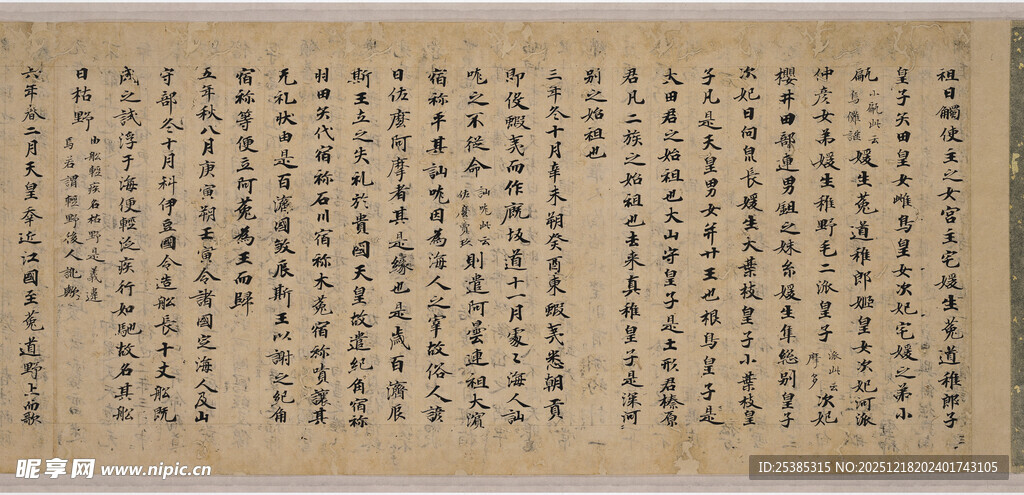 祖日觸使主之女宮主宅媛生菟道稚郎子
皇子矢田皇女雌鳥皇女次妃宅媛之弟小
甂小甂此云烏儺謎媛生菟道稚郎姬皇女次妃河派
仲彥女弟媛生稚野毛二派皇子派此云摩多次妃
櫻井田部連男鉏之妹糸媛生隼総別皇子
次妃日向泉長媛生大葉枝皇子小葉枝皇
子凡是天皇男女并廿王也根鳥皇子是
大田君之始祖也大山守皇子是土形君榛原
君凡二族之始祖也去来真稚皇子是深河
別之始祖也
三年冬十月辛未朔癸酉東蝦夷悉朝貢
即役蝦夷而作厩坂道十一月處〻海人訕
哤之不從命訕哤此云佐麼賣玖則遣阿曇連祖大濱
宿祢平其訕哤因為海人之宰故俗人諺
曰佐麼阿摩者其是緣也是歲百濟辰
斯王立之失礼於貴國天皇故遣紀角宿祢
羽田矢代宿祢石川宿祢木菟宿祢嘖讓其
无礼狀由是百濟國煞辰斯王以謝之紀角
宿祢等便立阿菟為王而歸
五年秋八月庚寅朔壬寅令諸國定海人及山
守部冬十月科伊豆國令造舩長十丈舩既
成之試浮于海便輕泛疾行如馳故名其舩
曰枯野由舩輕疾名枯野是義違焉若謂輕野後人訛歟
六年春二月天皇幸近江國至菟道野上而歌
三
昵享网 www.nipic.cn
ID:25385315 NO:20251218202401743105